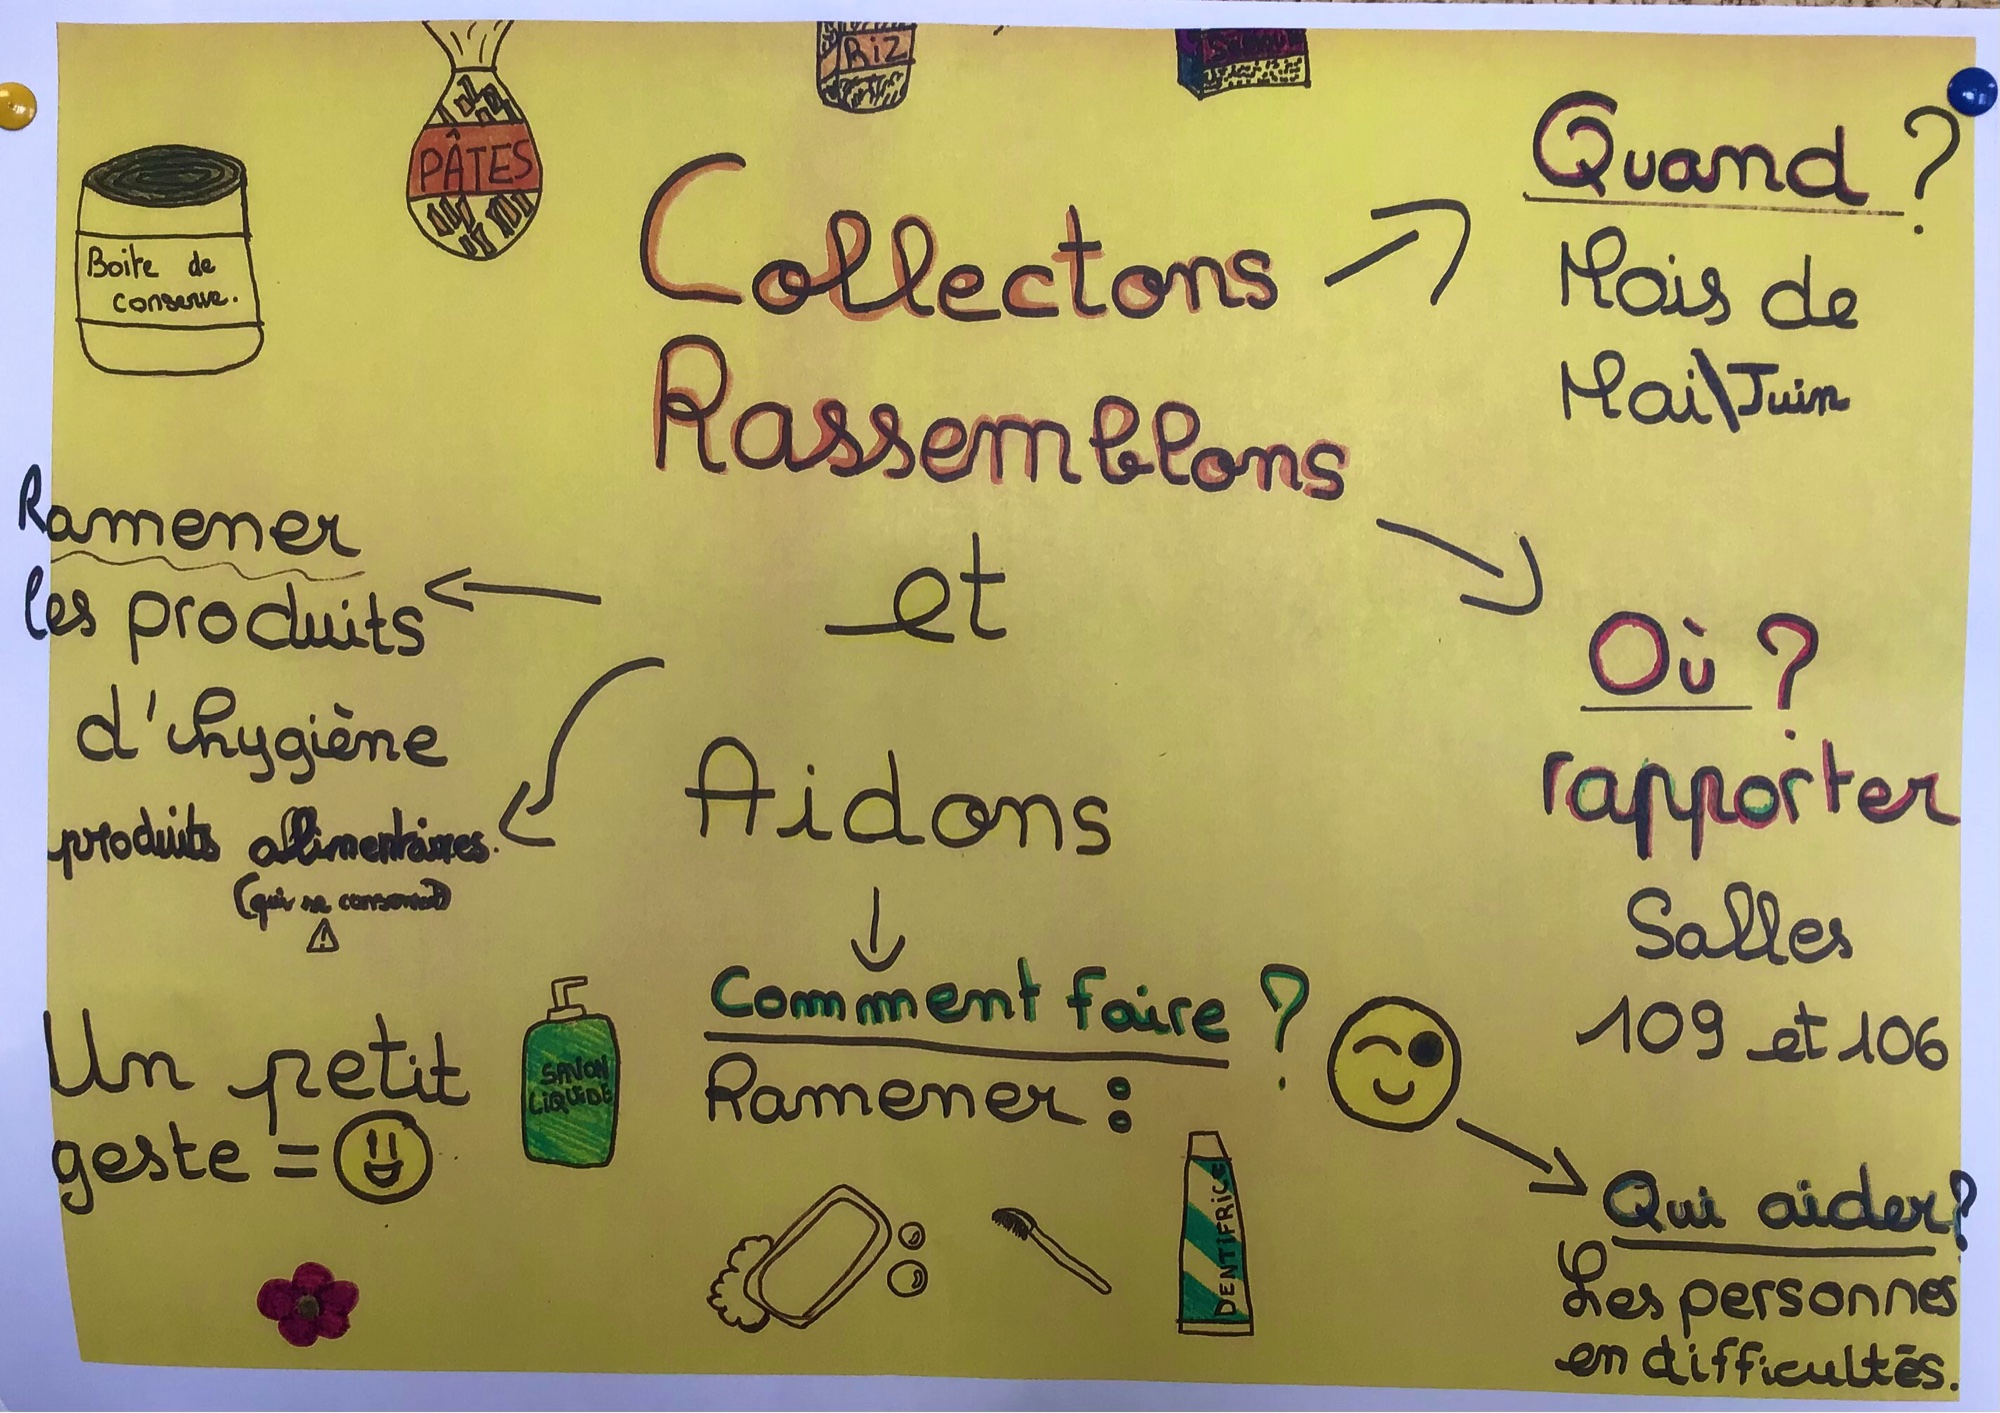 RIZ
PÂTES
Boite de
conserve.
Collectons
Rassemblons
et
Aidons
Quand ?
Mois de
Mai\Juin
Où ?
rapporter
Salles
109 et 106
Ramener
les produits
d'hygiène
produits allimentaires.
(qui se conservent)
Comment faire ?
Ramener :
SAVON
LIQUIDE
DENTIFRICE
Un petit
geste =
Qui aider?
Les personnes
en difficultés.